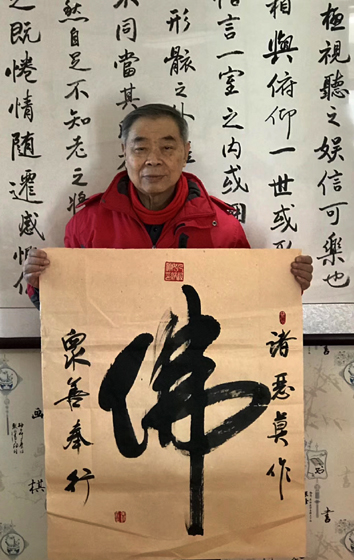 極視聽之娛信可樂也
相與俯仰一世或
言一室之内或因
形骸之外
不同當其
然自足不知老之將
之既惓情随遷感慨
諸惡莫作
佛
眾善奉行
画
棋
書